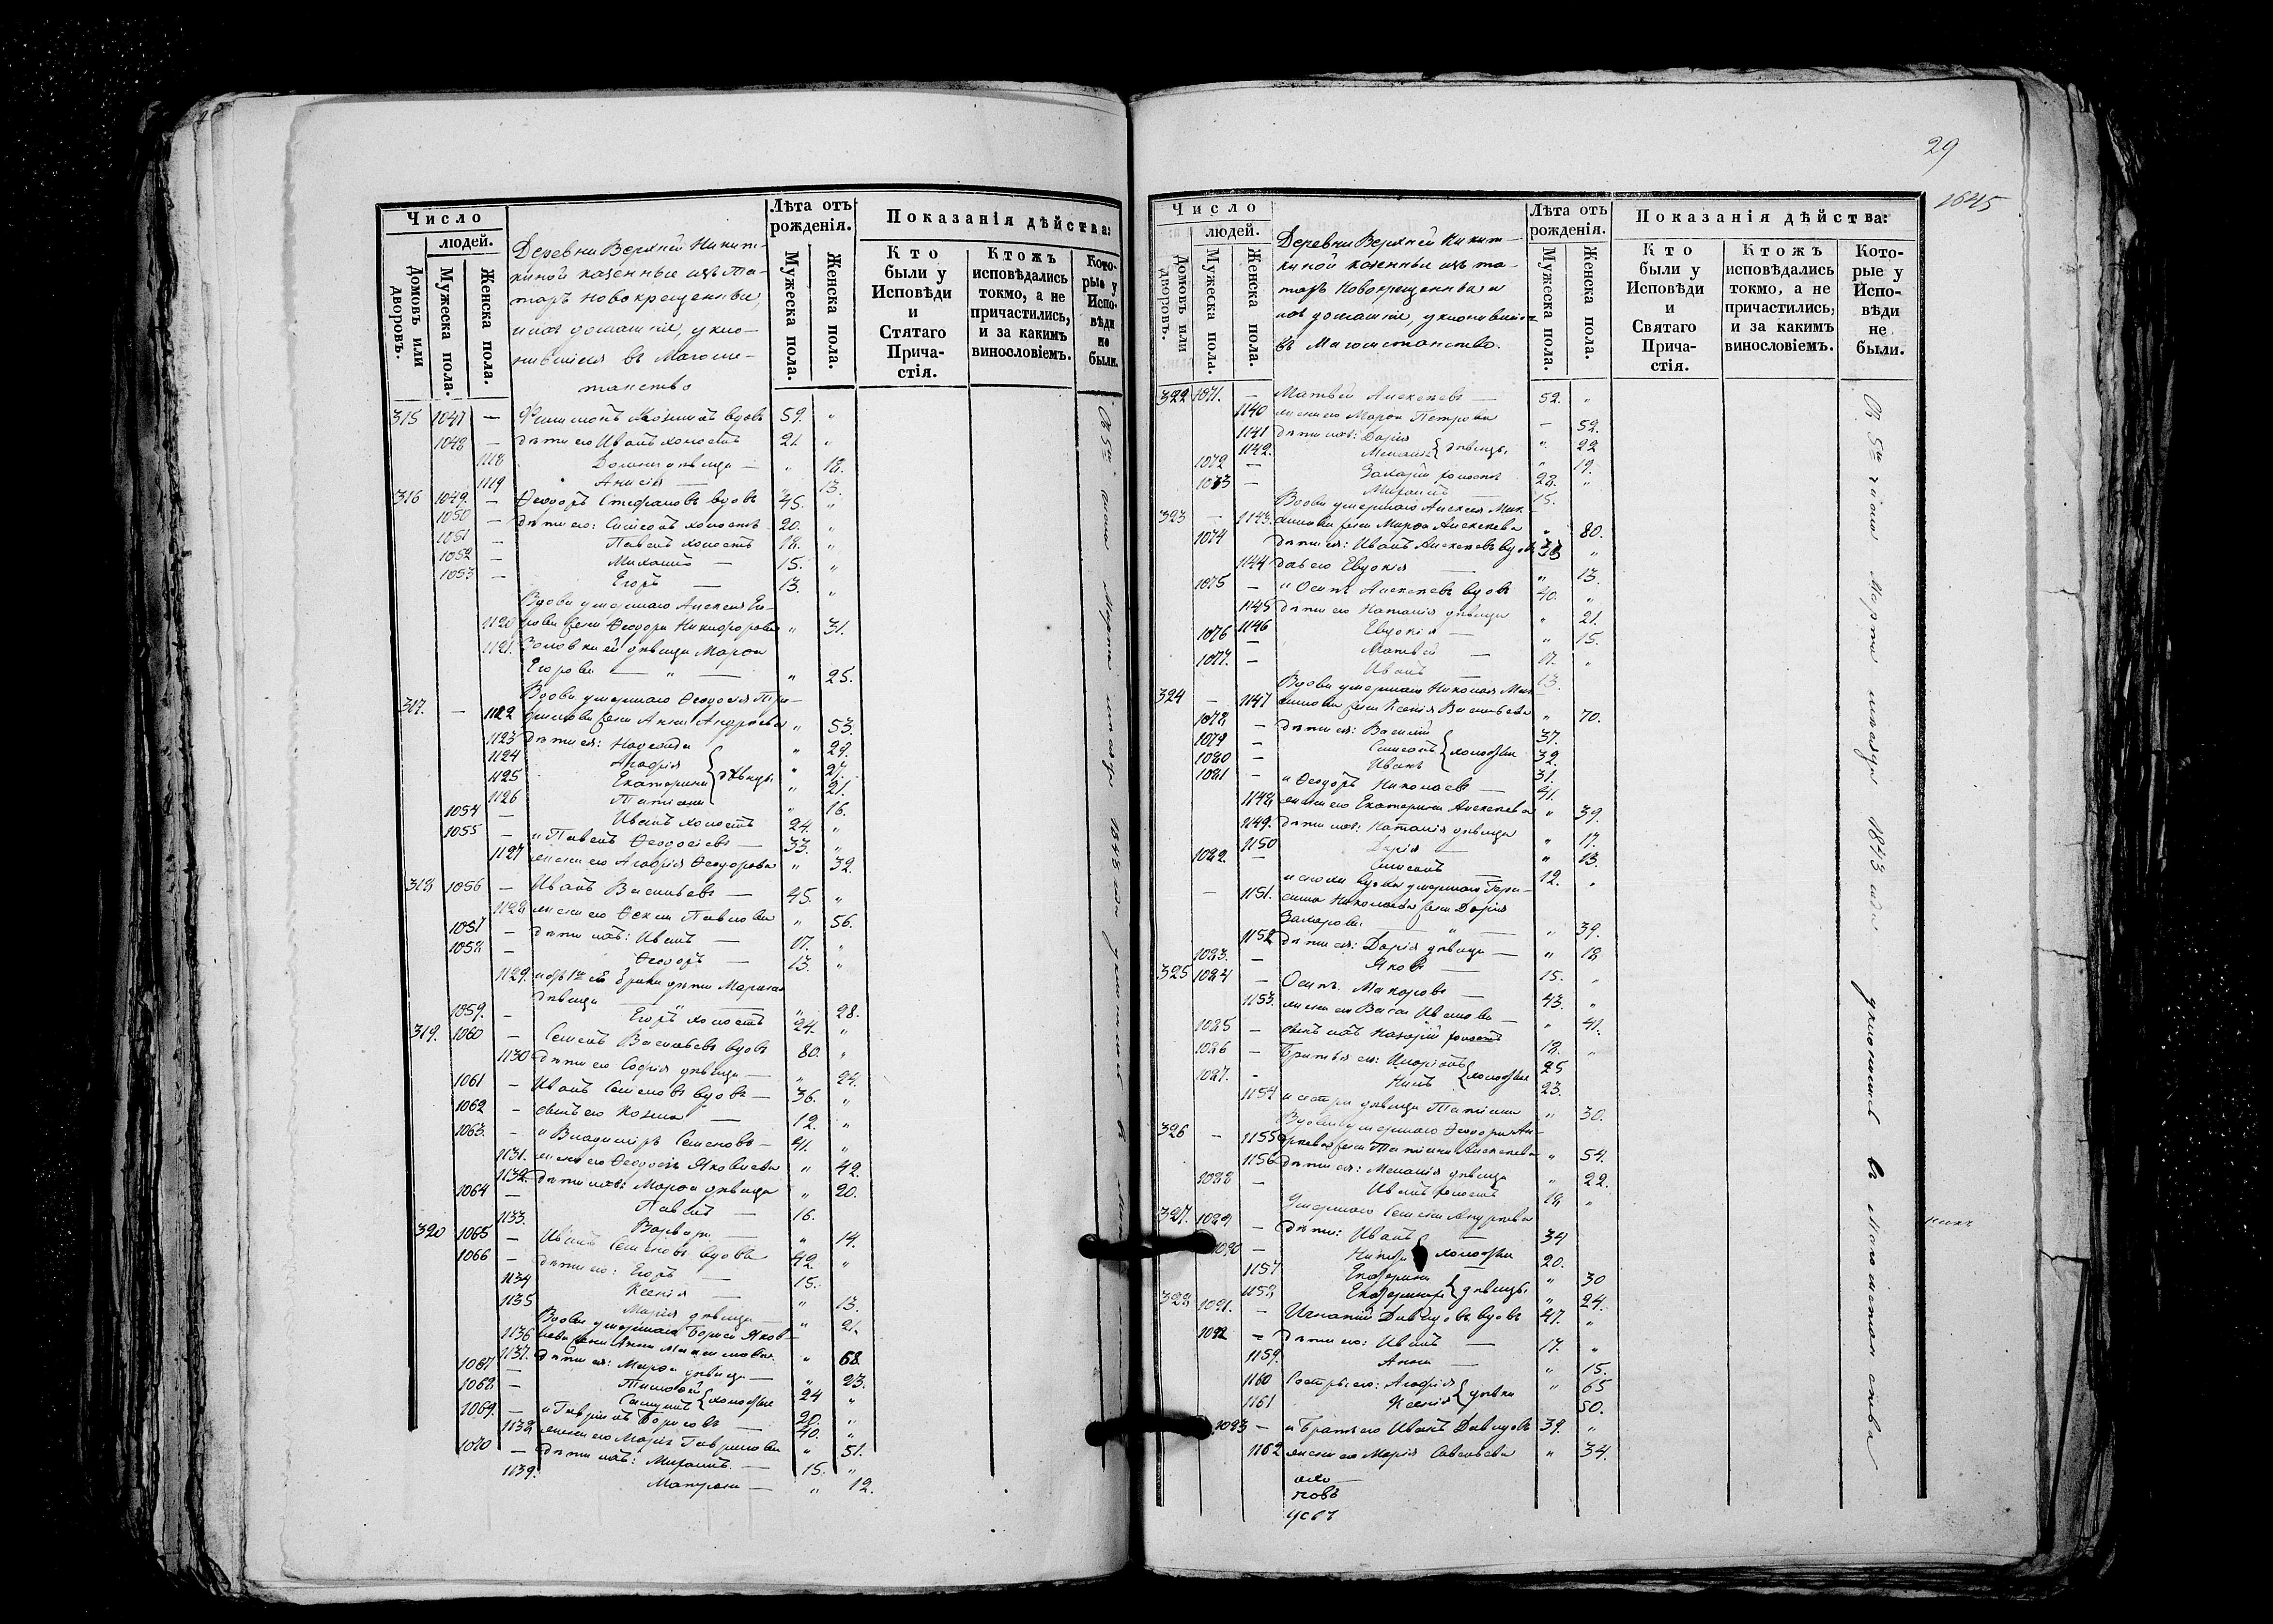 Число
людей.
Домовъ или дворовъ.
Мужеска пола.
Женска пола.
Деревни Верхней Никит-
киной казенные изъ та-
таръ новокрещенные,
и ихъ домашніе, укло-
нившіеся въ Магоме-
танство
Лѣта отъ рожденія.
Мужеска пола.
Женска пола.
Показанія дѣйства:
Кто были у Исповѣди и Святаго Прича-стія.
Ктожъ исповѣдались токмо, а не причастились, и за какимъ винословіемъ.
Кото-рые у Испо-вѣди не были.
315 1047 — Филимонъ вдовъ 59. "
1048 — дѣти его Иванъ холостъ 21. "
1118 дѣвица — " 18.
1119 Анисія — " 13.
316 1049. — Ѳеодоръ Стефановъ вдовъ 45. "
1050 — дѣти его: Симеонъ холостъ 20. "
1051 — Павелъ холостъ 18. "
1052 — Михаилъ — 15. "
1053 — Егоръ — 13. "
Вдова умершаго Алексея Его-
1120 рова жена Ѳеодора Никифорова " 31.
1121. Золовка ей дѣвица Марѳа
Егорова — " — " 25.
Вдова умершаго Ѳеодосія
317. — 1122 жена Анна Андреева " 53.
1123 дѣти ея: Надежда " 29.
1124 Агафія " 27.
1125 Екатерина } дѣвицы " 21.
1126 Татіана " 16.
1054 — Иванъ холостъ 24. "
1055 — и Павелъ Ѳеодосіевъ — 33. "
1127 жена его Агафія Ѳеодорова " 32.
318 1056 — Иванъ Васильевъ — 45. "
1128 жена его Ѳекла Павлова " 56.
1057 — дѣти ихъ: Иванъ — 17. "
1058 — Ѳеодоръ — 13. "
1129. дѣти
дѣвица — " 28.
1059. — Егоръ холостъ 24. "
319. 1060 — Семенъ Васильевъ вдовъ 80. "
1130 дѣти его Софія дѣвица — " 24.
1061 — Иванъ Семеновъ вдовъ — 36. "
1062 — сынъ его Козма — 12. "
1063. — и Владиміръ Семеновъ — 41. "
1131. жена его Ѳеодосія Яковлева " 42.
1132. дѣти ихъ: Марѳа дѣвица " 20.
1064 — Павелъ — 16.
1133. Варвара — " 14.
320 1065 — Иванъ Семеновъ вдовъ 42. "
1066 — дѣти его: Егоръ — 15.
1134 Ксенія — " 13.
1135 Марія дѣвица — " 21.
Вдова умершаго Бориса Яков-
1136 лева жена Анна Максимова " 68
1137. дѣти ея: Марѳа дѣвица — " 23.
1067 — Тимоѳей 24 "
1068 — } холостые 20. "
1069. — и Гавріилъ Борисовъ — 40. "
1138 жена его Марія Гаврилова " 51.
1070 — дѣти ихъ: Михаилъ. — 15. "
1139. Матрона — " 12.
Съ 5го числа Марта мѣсяца 1843 года уклонились въ
29
1645
Число
людей.
Домовъ или дворовъ.
Мужеска пола.
Женска пола.
Деревни Верхней Никит-
киной казенные изъ та-
таръ Новокрещенные и
ихъ домашніе, уклонившіеся
въ Магометанство.
Лѣта отъ рожденія.
Мужеска пола.
Женска пола.
Показанія дѣйства:
Кто были у Исповѣди и Святаго Прича-стія.
Ктожъ исповѣдались токмо, а не причастились, и за какимъ винословіемъ.
Кото-рые у Испо-вѣди не были.
322 1071. — Матвей Алексеевъ — 52. "
1140 жена его Марѳа Петрова — 52.
1141 дѣти ихъ: Дарія " 22
1142. Меланія } дѣвицы " 19.
1072 — Захарій холостъ 28. "
1073 — Михаилъ — 15.
Вдова умершаго Алексея
323 — 1143. жена Марѳа Алексеева " 80.
1074 дѣти ея: Иванъ Алексеевъ вдовъ 38 "
1144 дочь его Евдокія — " 13.
1075 — и Осипъ Алексеевъ вдовъ 40. "
1145 дѣти его Наталія дѣвица " 21.
1146 Евдокія — " 15.
1076 — Матвей — 17. "
1077. — Иванъ — 13.
Вдова умершаго Николая
324 — 1147 жена Ксенія Васильева " 70.
1078 — дѣти ея: Василій 37.
1079 — Симеонъ } холостые 32.
1080 — Иванъ 31.
1081 — и Ѳеодоръ Николаевъ — 41.
1148 жена его Екатерина Алексеева " 39.
1149. дѣти ихъ: Наталія дѣвица " 17.
1150 Дарія — " 13.
1082. — Симеонъ — 12. "
— и сноха вдова умершаго Гера-
1151. сима Николаева жена Дарія
Захарова — " — " 39.
1152 дѣти ея: Дарія дѣвица — " 18
1083. — Яковъ — 15. "
325 1084 — Осипъ Макаровъ — 43. "
1153. жена его Васса Иванова — " 41.
1085 — сынъ ихъ Назарій холостъ 18. "
1086 — Братья его: Иларіонъ 25
1087. — } холостые 23.
1154 и сестра дѣвица Татіана " 30.
Вдова умершаго Ѳеодора Ан-
326 — 1155 дреева жена Татіана Алексеева " 54.
1156 дѣти ея: Меланія дѣвица " 22.
1088 — Иванъ холостъ 18 "
Умершаго Семена Андреева
327. 1089 — дѣти: Иванъ 34
1090 — } холостые 20.
1157 Екатерина " 30
1158 Екатерина } дѣвицы " 24.
328 1091. — Игнатій Давыдовъ вдовъ 47. "
1092 — дѣти его: Иванъ — 17. "
1159. Анна — " 15.
1160 Сестры его: Агафія " 65
1161 Ксенія } дѣвки 50.
1093 — и Братъ его Иванъ Давыдовъ 39. "
1162 жена его Марія Савельева " 34.
Съ 5го числа Марта мѣсяца 1843 года уклонились въ Магометанство